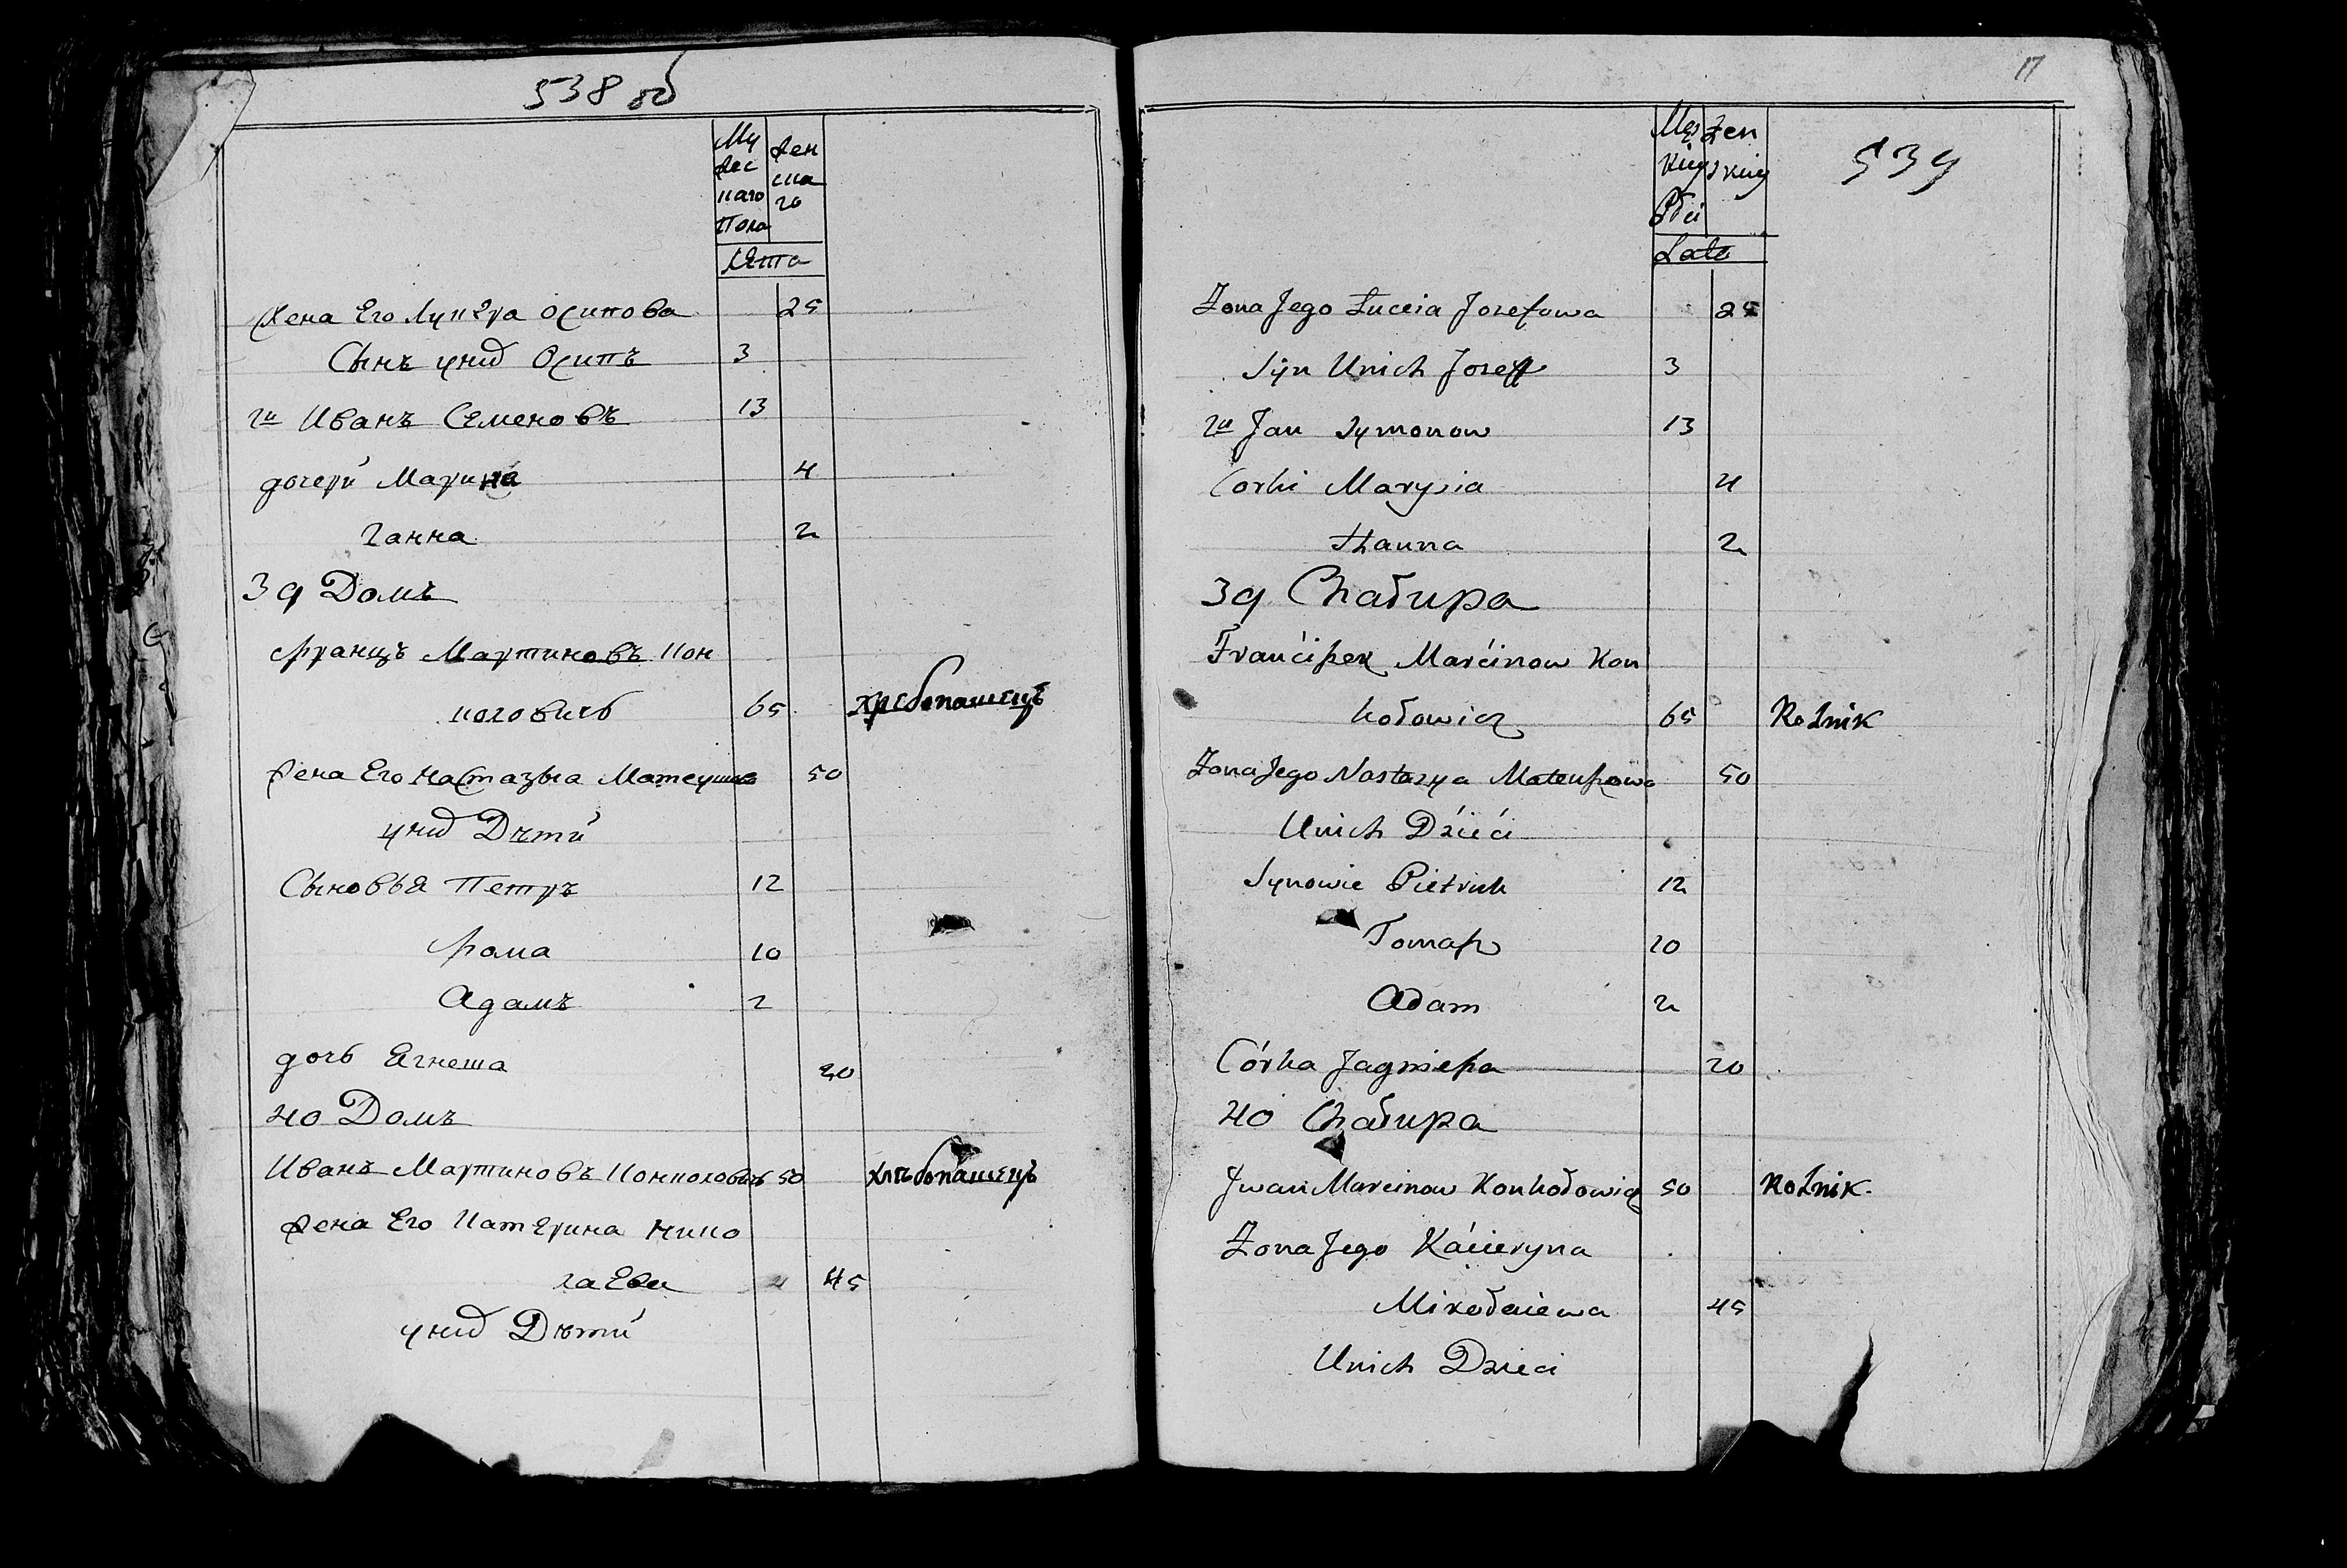 538 об
Му жен
жес ска
каго го
Пола
Лѣта
Жена Его Луцея Осипова 25
Сынъ у них Осипъ 3
2й Иванъ Семеновъ 13
дочери Марина 4
Ганна 2
39 Домъ
Францъ Мартиновъ Кон
коловичь 65 хлебопашецъ
Жена Его Настазыа Матеушова 50
у них Дѣти
Сыновья Петръ 12
Фома 10
Адамъ 2
дочь Ягнеша 20
40 Домъ
Иванъ Мартиновъ Конколовичь 50 хлѣбопашецъ
Жена Его Катерина Нико
лаева 45
у них Дѣти
17
Męz Zen
kiey skiey
Płci
539
Lata
Zona Jego Łuceia Jozefowa 25
Syn Unich Jozeff 3
2й Jan Symonow 13
Corki Marysia 4
Hanna 2
39 Chałupa
Franciszek Marcinow Kon
kołowicz 65 Rolnik
Zona Jego Nastazya Mateuszowa 50
Unich Dzieci
Synowie Pietruk 12
Tomasz 10
Adam 2
Córka Jagniesza 20
40 Chałupa
Jwan Marcinow Konkołowicz 50 Rolnik.
Zona Jego Kacieryna
Mikołaiewa 45
Unich Dzieci